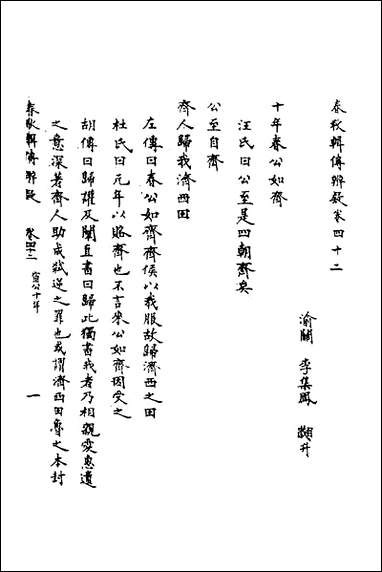 春秋輯傳辨疑卷四十二
渝關 李集鳳 翽升
十年春公如齊
汪氏曰公至是四朝齊矣
公至自齊
齊人歸我濟西田
左傳曰春公如齊齊侯以我服故歸濟西之田
杜氏曰元年以賂齊也不言來公如齊因受之
胡傳曰歸讙及闡直書曰歸此獨書我者乃相親愛惠遺
之意深著齊人助成弑逆之罪也或謂濟西田魯之本封
春秋輯傳辨疑 卷四十二 宣公十年 一